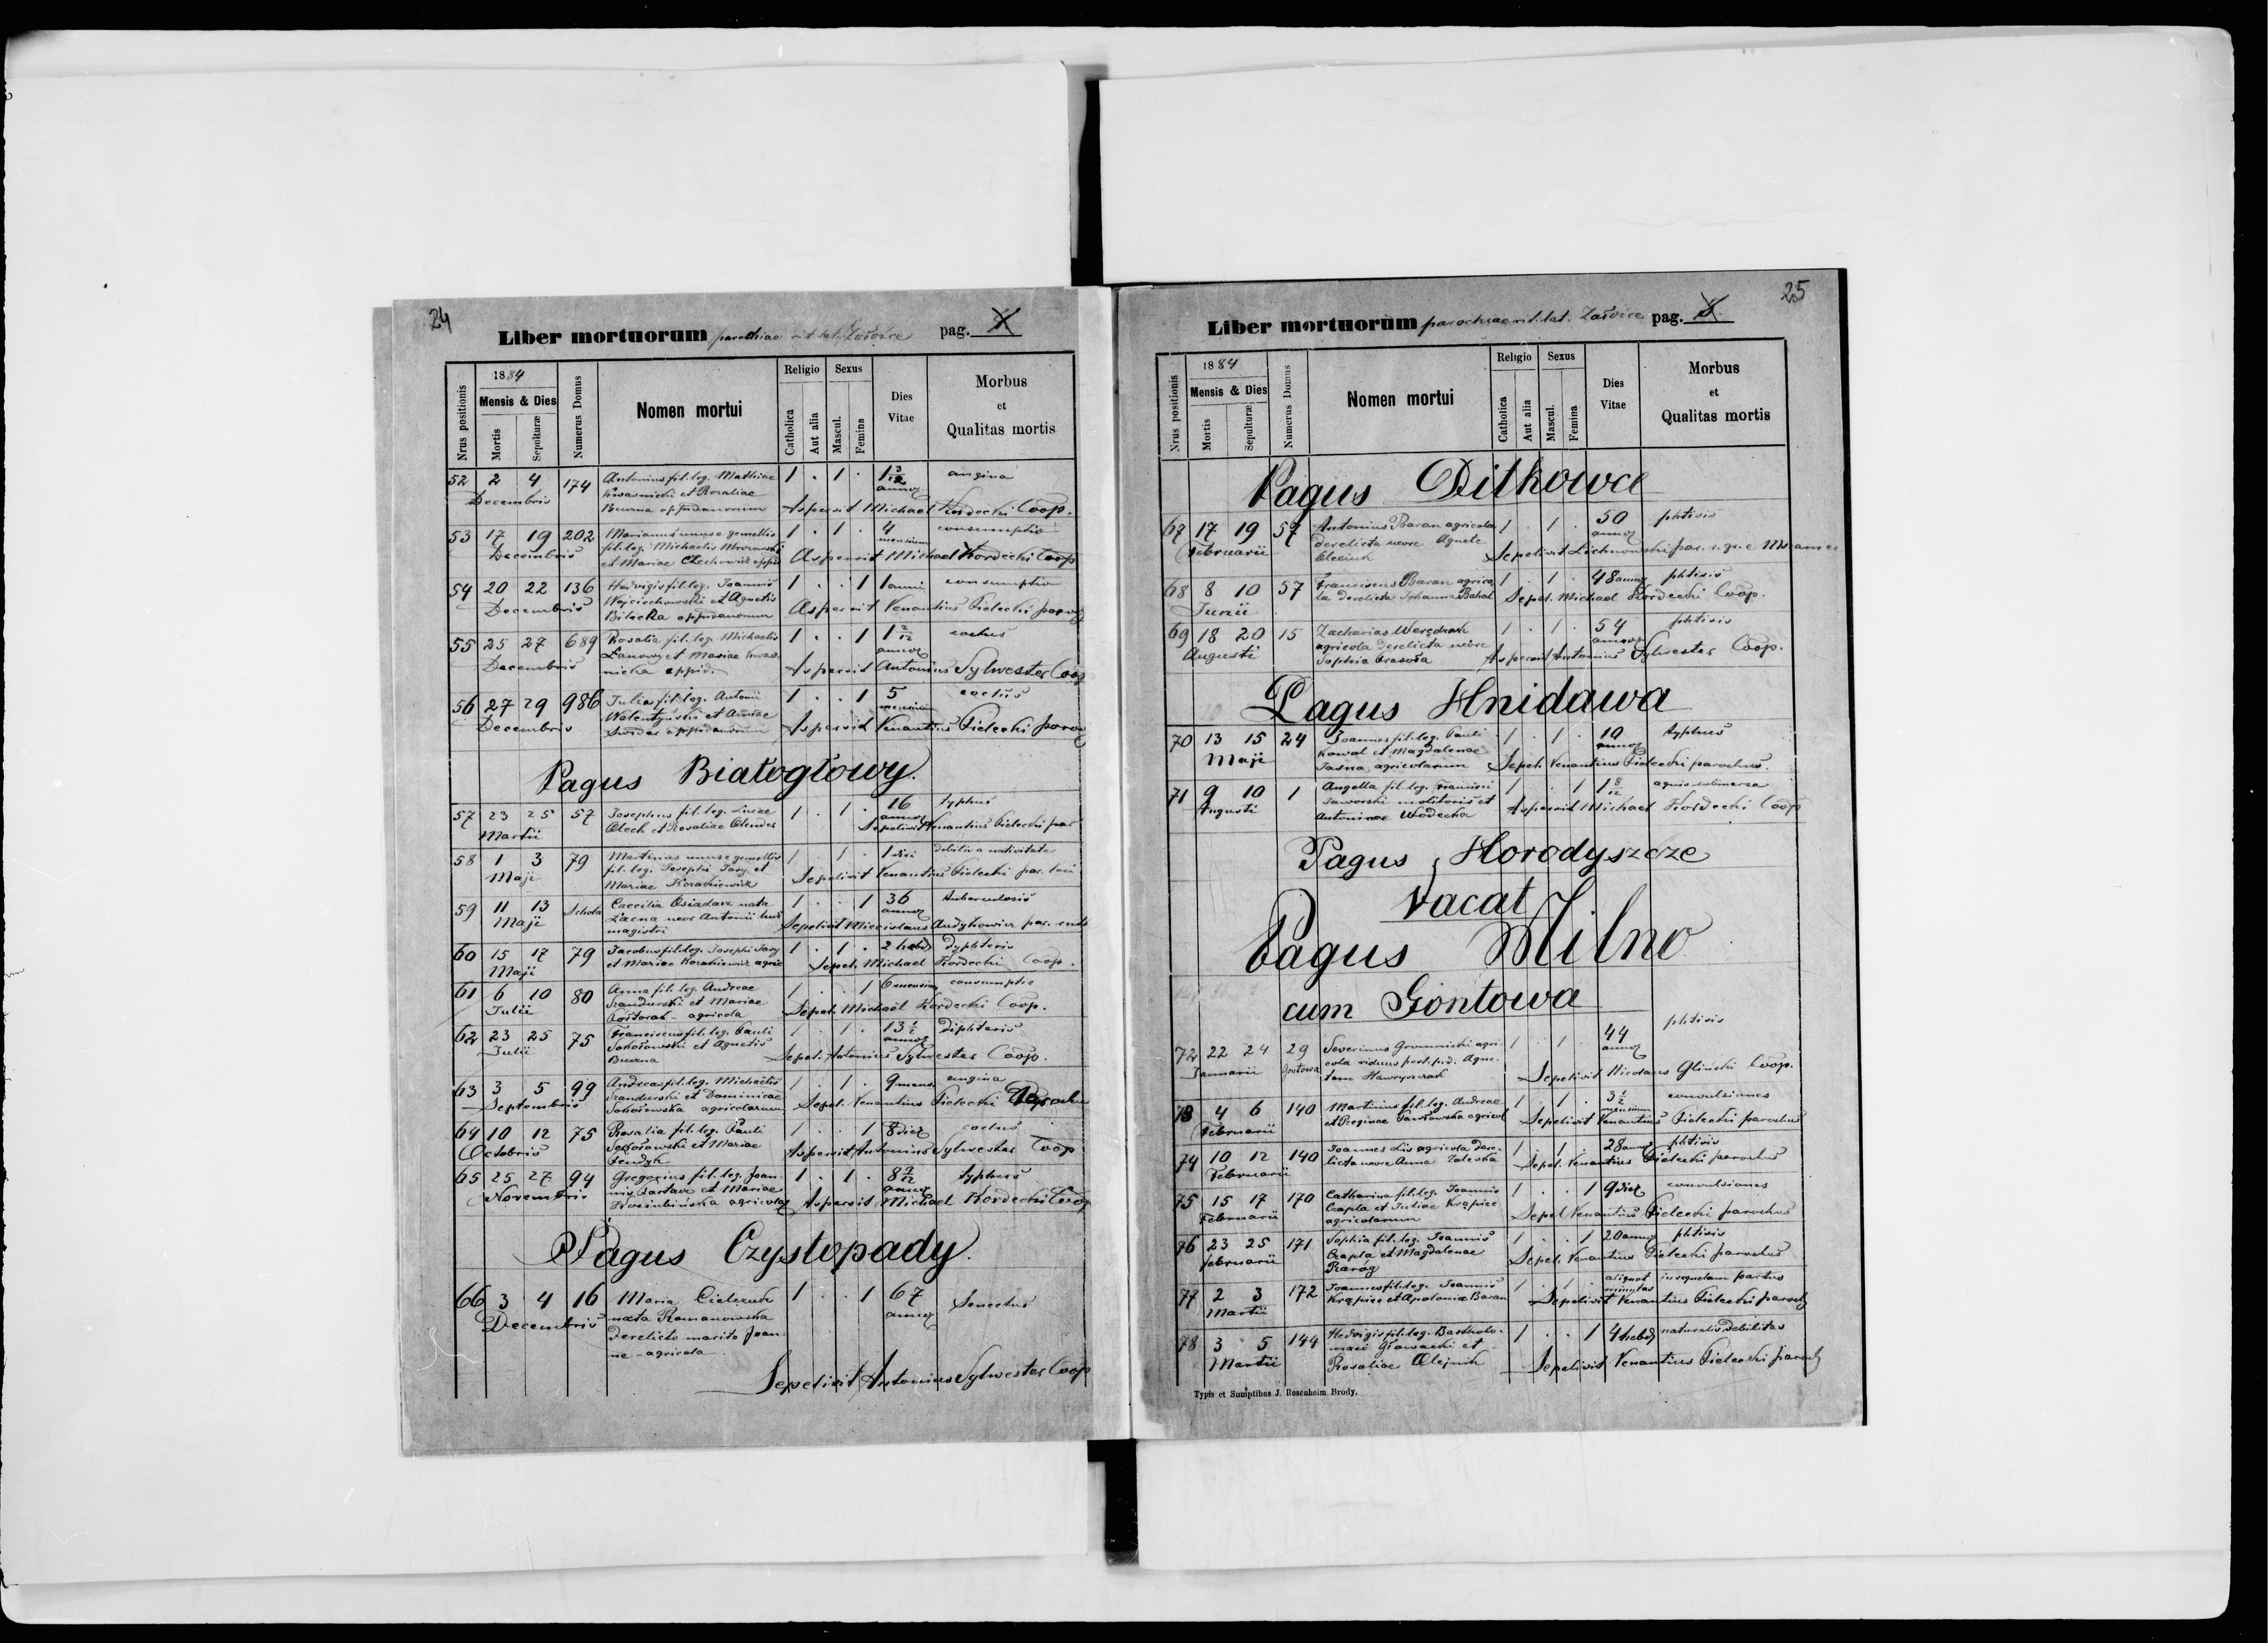 24
Liber mortuorum parochiae rit. lat. Załośce pag.
Nrus positionis
1884
Mensis & Dies
Mortis
Sepulturæ
Numerus Domus
Nomen mortui
Religio
Catholica
Aut alia
Sexus
Mascul.
Femina
Dies
Vitae
Morbus
et
Qualitas mortis
52 2 4 174 Antonius fil. leg. Mathiae 1 . 1 . 1 3/12 angina
Decembris Kwasnicki et Rosaliae annor
Burna oppidanorum Aspersit Michael Kordecki Coop.
53 17 19 202 Marianus unus e gemellis 1 . 1 . 4 consumptio
Decembris fil. leg. Michaelis Mrozowski mensium
et Mariae Czechowicz oppid Aspersit Michael Kordecki Coop
54 20 22 136 Hedvigis fil. leg. Joannis 1 . . 1 1 anni consumptio
Decembris Wojciechowski et Agnetis
Bilecka oppidanorum Aspersit Venantius Pielecki paroch
55 25 27 689 Rosalia fil. leg. Michaelis 1 . . 1 1 2/12 coctus
Decembris et Mariae Kwas annor
nicka oppid. Aspersit Antonius Sylwester Coop
56 27 29 986 Julia fil. leg. Antonii 1 . . 1 5 coctus
Decembris Walentyński et Annae mensium
oppidanorum Aspersit Venantius Pielecki paroch
Pagus Białogłowy.
57 23 25 57 Josephus fil. leg. Lucae 1 . 1 . 16 typhus
Martii Olech et Rosaliae Olender annor
Sepelivit Venantius Pielecki par
58 1 3 79 Martinus unus e gemellis 1 . 1 . 1 diei debilis a nativitate
Maji fil. leg. Josephi Jary et
Mariae Koraniewicz Sepelivit Venantius Pielecki par. loci
59 11 13 Schola Caecilia Osiadacz nata 1 . . 1 36 tuberculosis
Maji Łacna uxor Antonii annor
magistri Sepelivit Miecislaus
60 15 17 79 Jacobus fil. leg. Josephi Jary 1 . 1 . 2 hebd dyphteris
Maji et Mariae Koraniewicz agric Sepel. Michael Kordecki Coop.
61 6 10 80 Anna fil. leg. Andreae 1 . . 1 6 mensium consumptio
Julii et Mariae
agricola Sepel. Michaël Kordecki Coop.
62 23 25 75 Franciscus fil. leg. Pauli 1 . 1 . 13 1/2 diphteris
Julii Sokołowski et Agnetis annor
Burna Sepel. Antonius Sylwester Coop.
63 3 5 99 Andreas fil. leg. Michaëlis 1 . 1 . 9 mens angina
Septembris et Dominicae
Sokołowska agricolarum Sepel. Venantius Pielecki
64 10 12 75 Rosalia fil. leg. Pauli 1 . . 1 8 dier coctus
Octobris Sokołowski et Mariae
Aspersit Antonius Sylwester Coop
65 25 27 94 Gregorius fil. leg. Joan 1 . 1 . 8 2/12 typhus
Novembris nis et Mariae annor
agricolar Aspersit Michael Kordecki Coop
Pagus Czystopady.
66 3 4 16 Maria 1 . . 1 67 Senectus
Decembris nata Romanowska annor
derelicto marito Joan
ne - agricola
Sepelivit Antonius Sylwester Coop
25
Liber mortuorum parochiae rit. lat. Załośce pag.
Nrus positionis
1884
Mensis & Dies
Mortis
Sepulturæ
Numerus Domus
Nomen mortui
Religio
Catholica
Aut alia
Sexus
Mascul.
Femina
Dies
Vitae
Morbus
et
Qualitas mortis
Pagus Ditkowce
67 17 19 57 Antonius Baran agricola 1 . 1 . 50 phtisis
Februarii derelicta uxore Agnete annor
Sepelivit
68 8 10 57 Franciscus Baran agrico 1 . 1 . 48 annor phtisis
Junii la derelicta Johanna Bahal Sepel. Michael Kordecki Coop.
69 18 20 15 Zacharias 1 . 1 . 54 phtisis
Augusti agricola derelicta uxore annor
Sophia Aspersit Antonius Sylwester Coop.
Pagus Hnidawa
70 13 15 24 Joannes fil. leg. Pauli 1 . 1 . 10 typhus
Maji Kowal et Magdalenae annor
Jasna, agricolarum Sepel. Venantius Pielecki parochus.
71 9 10 1 Angella fil. leg. Francisci 1 . . 1 1 8/12 aquis submersa
Augusti Jaworski molitoris et
Antoninae Wodecka Aspersit Michael Kordecki Coop
Pagus Horodyszcze
vacat
Pagus Milno
cum Gontowa
72 22 24 29 Severinus Gromnicki agri 1 . 1 . 44 phtisis
Januarii Gontowa cola viduus post p. d. Agne annor
tem Sepelivit Nicolaus Gliński Coop.
73 4 6 140 Martinus fil. leg. Andreae 1 . 1 . 3 1/2 convulsiones
Februarii et Reginae Pawłowska agricol mensium
Sepelivit Venantius Pielecki parochus
74 10 12 140 Joannes Lis agricola dere 1 . 1 . 28 annor phtisis
Februarii licta uxore Anna Zaleska Sepel. Venantius Pielecki parochus
75 15 17 170 Catharina fil. leg. Joannis 1 . . 1 9 dier convulsiones
Februarii Czapla et Juliae Krąpiec
agricolarum Sepel Venantius Pielecki parochus
76 23 25 171 Sophia fil. leg. Joannis 1 . . 1 20 annor phtisis
Februarii Czapla et Magdalenae
Raróg Sepel. Venantius Pielecki parochus
77 2 3 172 Joannes fil. leg. Joannis 1 . 1 . aliquot in sequelam partus
Martii Krąpiec et Apolonia Baran minutas
Sepelivit Venantius Pielecki paroch
78 3 5 144 Hedvigis fil. leg. Bartholo- 1 . . 1 4 hebd naturalis debilitas
Martii maei Głowacki et
Rosaliae Olejnik Sepelivit Venantius Pielecki paroch
Typis et Sumptibus J. Rosenheim Brody.